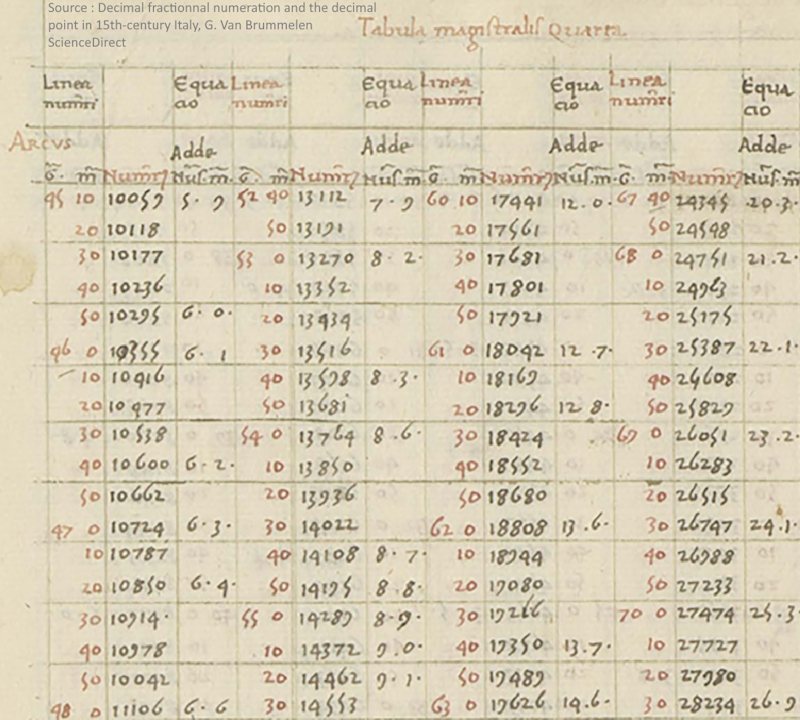 Source : Decimal fractionnal numeration and the decimal
point in 15th-century Italy, G. Van Brummelen
ScienceDirect
Tabula magistralis Quarta
Linea numeri Equa cio Linea numeri Equa cio Linea numeri Equa cio Linea numeri Equa cio
Arcus Adde Adde Adde Adde
G. m Numeri Nus. m. G. m Numeri Nus. m G. m Numeri Nus. m. G. m Numeri Nus. m.
45 10 10059 5·9 52 40 13112 7·9 60 10 17441 12·0· 67 40 24345 20·3·
20 10118 50 13191 20 17561 50 24548
30 10177 53 0 13270 8·2· 30 17681 68 0 24751 21·2·
40 10236 10 13352 40 17801 10 24963
50 10295 6·0· 20 13434 50 17921 20 25175
46 0 10355 6·1 30 13516 61 0 18042 12·7· 30 25387 22·1·
10 10416 40 13598 8·3· 10 18169 40 25608
20 10477 50 13681 20 18296 12 8· 50 25829
30 10538 54 0 13764 8·6· 30 18424 69 0 26051 23·2·
40 10600 6·2· 10 13850 40 18552 10 26283
50 10662 20 13936 50 18680 20 26515
47 0 10724 6·3· 30 14022 62 0 18808 13·6· 30 26747 24·1·
10 10787 40 14108 8·7· 10 18944 40 26988
20 10850 6·4· 50 14195 8·8· 20 19080 50 27233
30 10914· 55 0 14289 8·9· 30 19216 70 0 27474 25·3
40 10978 10 14372 9·0· 40 19350 13·7· 10 27727
50 10042 20 14462 9·1· 50 19489 20 27980
48 0 11106 6·6 30 14553 63 0 19626 14·6· 30 28234 26·9